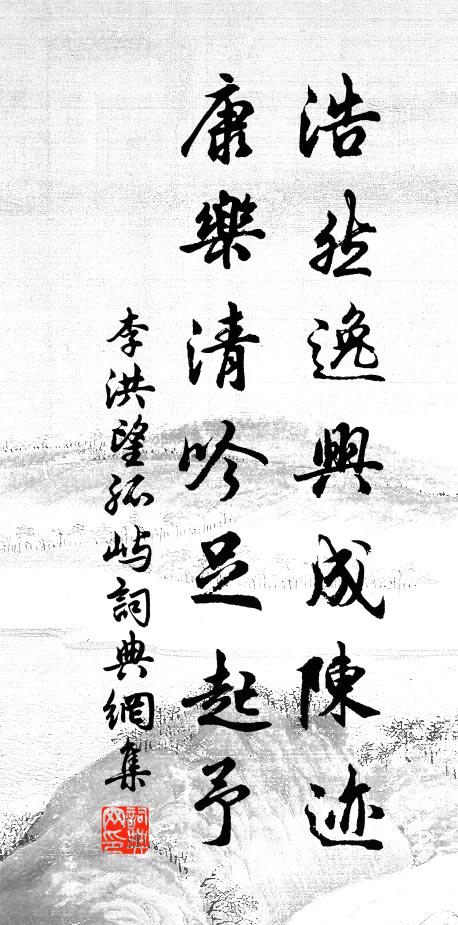 浩然逸興成陳迹
康樂清吟足起予
李洪望孤屿詞典網集